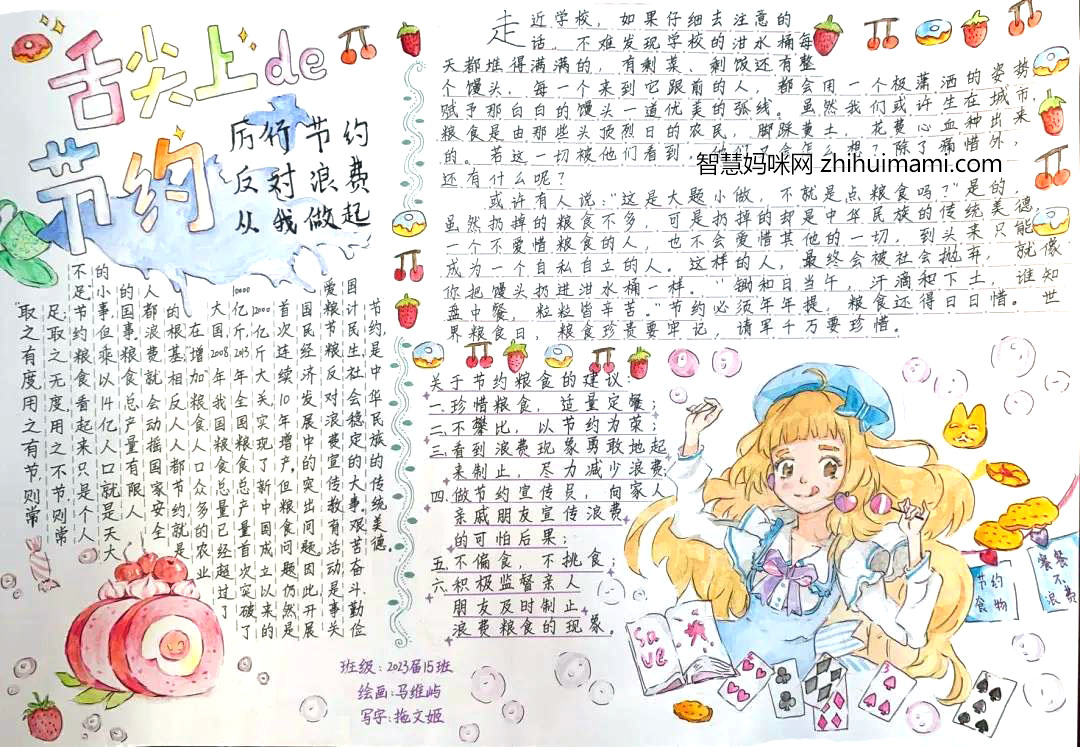 舌尖上de
节约
厉行节约
反对浪费
从我做起
"取之有度用之有节,则常
足,取之无度用之不节,则常
不足"节约粮食看起来只是个人
的小事,但乘以14亿人口就是天大
的国事,粮食总产量有限人
人都浪费就会动摇国家安全
的根基,相反人人都节约就是
在增加粮食人口众多的农业
大国2008年我国粮食总量已经超过了
10000亿斤2013年全国粮食总产量首次突破了
12000亿斤大关实现了新中国成立以来的
首次连续10年增产,但粮食问题仍然是
国民经济发展中的突出问题因此开展
爱粮节粮反对浪费宣传教育活动是事关
国计民生社会稳定的大事,艰苦奋斗、勤俭
节约,是中华民族的传统美德。
走近学校,如果仔细去注意的
话,不难发现学校的泔水桶每
天都堆得满满的,有剩菜、剩饭还有整
个馒头,每一个来到它跟前的人,都会用一个极潇洒的姿势
赋予那白白的馒头一道优美的弧线。虽然我们或许生在城市,
粮食是由那些头顶烈日的农民,脚踩黄土,花费心血种出来
的。若这一切被他们看到,他们又会怎么想?除了痛惜外,
还有什么呢?
智慧妈咪网 zhihuimami.com
或许有人说:"这是大题小做,不就是点粮食吗?"是的,
虽然扔掉的粮食不多,可是扔掉的却是中华民族的传统美德,
一个不爱惜粮食的人,也不会爱惜其他的一切,到头来只能
成为一个自私自立的人。这样的人,最终会被社会抛弃,就像
你把馒头扔进泔水桶一样。"锄和日当午,汗滴和下土,谁知
盘中餐,粒粒皆辛苦。"节约必须年年提,粮食还得日日惜。世
界粮食日,粮食珍贵要牢记,请军千万要珍惜。
关于节约粮食的建议:
一.珍惜粮食,适量定餐;
二.不攀比,以节约为荣;
三.看到浪费现象勇敢地起
来制止,尽力减少浪费;
四.做节约宣传员,向家人
亲戚朋友宣传浪费
的可怕后果;
五.不偏食,不挑食;
六.积极监督亲人
朋友及时制止
浪费粮食的现象。
节约
食物
餐餐
不
浪费
Save
班级:2023届15班
绘画:马维屿
写字:拖文姬